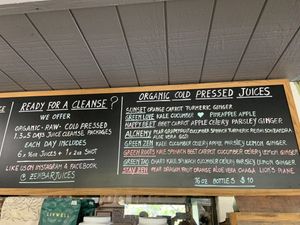 READY FOR A CLEANSE?
WE OFFER
ORGANIC - RAW - COLD PRESSED
1, 3, 5 DAYS JUICE CLEANSE PACKAGES
EACH DAY INCLUDES
6 x 16oz JUICES + 1 2oz SHOT
LIKE US ON INSTAGRAM & FACEBOOK
@ ZENBARJUICES
ORGANIC COLD PRESSED JUICES
SUNSET ORANGE CARROT TURMERIC GINGER
GREEN LOVE KALE CUCUMBER PINEAPPLE APPLE
HAPPY BEET BEET CARROT APPLE CELERY PARSLEY GINGER
ALCHEMY PEAR GRAPEFRUIT CUCUMBER SPINACH TURMERIC REISHI
ALOE VERA
GREEN ZEN KALE CUCUMBER CELERY APPLE PARSLEY LEMON GINGER
GREEN ROOTS KALE SPINACH BEET CARROT APPLE CUCUMBER CELERY LEMON GINGER
GREEN TAO CHARD KALE SPINACH CUCUMBER CELERY PARSLEY LEMON GINGER
STAY ZEN PEAR DRAGON FRUIT ORANGE ALOE VERA CHAGA LION'S MANE
16 oz BOTTLES $10